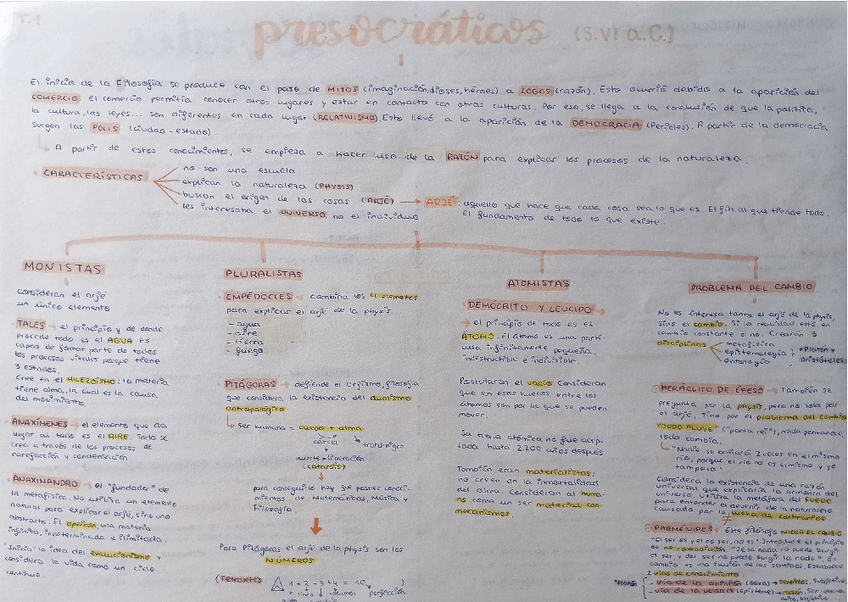 T.1
presocráticos (S.VI a.C.)
El inicio de la Filosofía se produce con el paso de MITOS (imaginación, dioses, héroes) a LOGOS (razón). Esto ocurrió debido a la aparición del
COMERCIO. El comercio permitía conocer otros lugares y estar en contacto con otras culturas. Por eso, se llega a la conclusión de que la política,
la cultura, las leyes... son diferentes en cada lugar (RELATIVISMO). Esto llevó a la aparición de la DEMOCRACIA (Pericles). A partir de la democracia
surgen las POLIS (ciudad-estado).
A partir de estos conocimientos, se empieza a hacer uso de la RAZÓN para explicar los procesos de la naturaleza.
CARACTERÍSTICAS
no son una escuela
explican la naturaleza (PHYSIS)
buscan el origen de las cosas (ARJÉ) → ARJÉ: aquello que hace que cada cosa sea lo que es. El fin al que tiende todo.
El fundamento de todo lo que existe.
les interesaba el UNIVERSO no el individuo
MONISTAS
consideran el arjé
un único elemento
TALES → el principio y de donde
procede todo es el AGUA es
capaz de formar parte de todos
los procesos vitales porque tiene
3 estados.
Cree en el HILEZOÍSMO: la materia
tiene alma, la cual es la causa
del movimiento.
ANAXÍMENES → el elemento que da
lugar a todo es el AIRE. Todo se
crea a través de los procesos de
rarefacción y condensación.
ANAXIMANDRO → el "fundador" de
la metafísica. No utiliza un elemento
natural para explicar el arjé, sino uno
abstracto. El apeiron, una materia
infinita, indeterminada e ilimitada.
Inicia la idea del evolucionismo y
considera la vida como un ciclo
continuo
PLURALISTAS
EMPÉDOCLES → combina los 4 elementos
para explicar el arjé de la physis
- agua
- aire
- tierra
- fuego
PITÁGORAS → defiende el orfismo, filosofía
que considera la existencia del dualismo
antropológico
Ser humano = cuerpo + alma
cárcel
transmigra
muerte = liberación
(catarsis)
para conseguirlo hay que poseer conoci-
mientos de Matemáticas, Música y
Filosofía
Para Pitágoras el arjé de la physis son los
NÚMEROS
(Tetraktis 1 + 2 + 3 + 4 = 10
perfección )
ATOMISTAS
DEMÓCRITO y LEUCIPO
el principio de todo es el
ÁTOMO: el átomo es una partí-
cula infinitamente pequeña,
indestructible e indivisible
Postularon el vacío. Consideran
que en esos huecos entre los
átomos son por la que se pueden
mover.
Su teoría atómica no fue acep-
tada hasta 2200 años después
También eran materialistas:
no creen en la inmortalidad
del alma. Consideran al huma-
no como un ser material con
mecanismos.
PROBLEMA DEL CAMBIO
No les interesa tanto el arjé de la physis,
sino el cambio. Si la realidad está en
cambio constante o no. Crearon 3
disciplinas
metafísica
epistemología
ontología
Platón y
Aristóteles
HERÁCLITO DE ÉFESO → También se
pregunta por la physis, pero no solo por
el arjé, sino por el problema del cambio
"TODO FLUYE" ("panta rei"), nada permanece,
todo cambia.
"Nadie se bañará 2 veces en el mismo
río, porque el río no es el mismo y yo
tampoco"
Considera la existencia de una razón
universal que explicaría la armonía del
universo. Utiliza la metáfora del FUEGO
para entender el devenir de la naturaleza
causada por la lucha de contrarios
PARMÉNIDES → Este filósofo NIEGA EL CAMBIO
"El ser es y el no ser, no es". Introduce el principio
de no contradicción "De la nada no puede surgir
el ser, y del ser no puede surgir la nada". El
cambio es una ilusión de los sentidos. Establece
2 vías de conocimiento
- vía de la opinión (doxa) → sentidos, subjetiva,
- vía de la verdad (episteme) → razón,